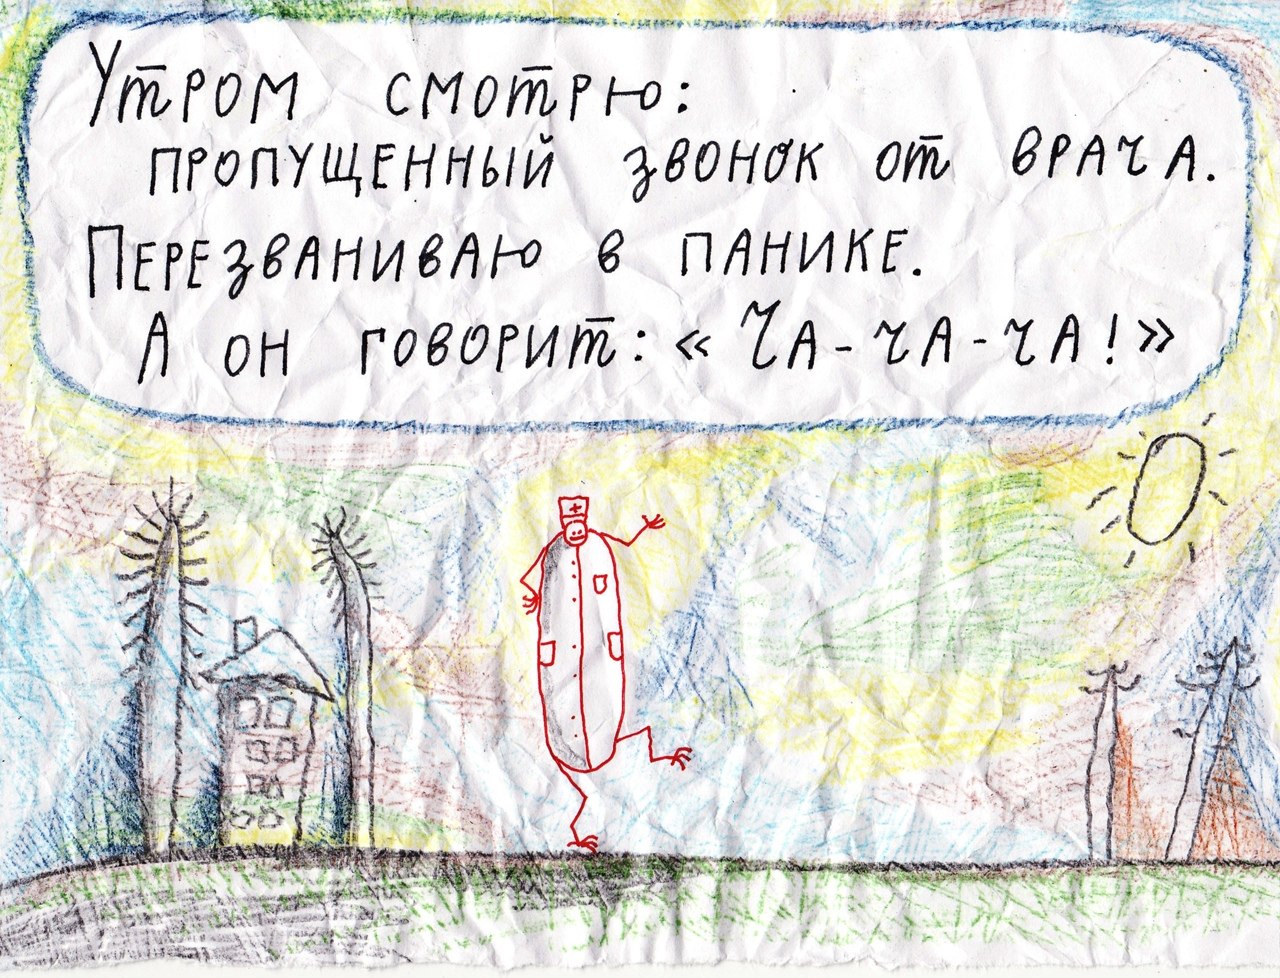 Утром смотрю:
пропущенный звонок от врача.
Перезваниваю в панике.
А он говорит: «Ча-ча-ча!»